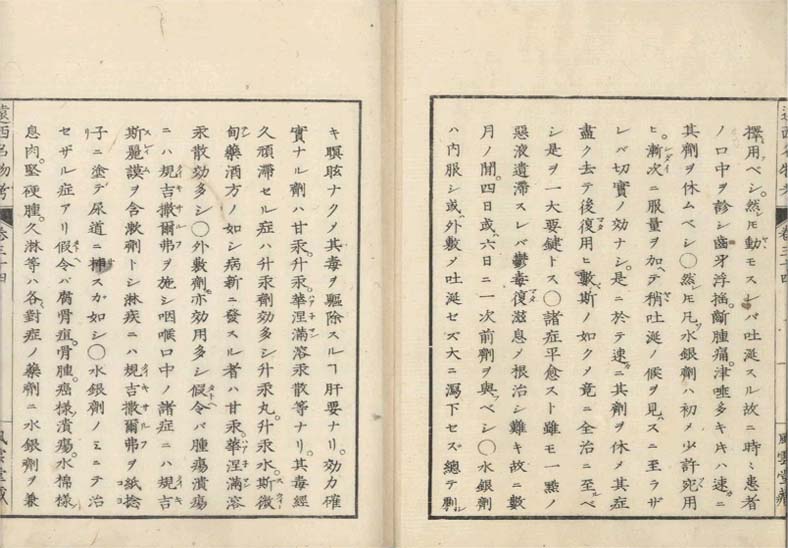 擇用ベシ。然ㇾ𪜈動モスレバ吐涎スル故ニ時〻患者
ノ口中ヲ診シ齒牙浮揺。齗腫痛。津唾多キ𪜈ハ速ニ
其劑ヲ休ムベシ〇然𪜈凡ソ水銀劑ハ初メ少許宛用
ヒ。漸次ニ服量ヲ加ヘテ稍吐涎ノ候ヲ見スニ至ラザ
レバ切實ノ効ナシ。是ニ於テ速ニ其劑ヲ休メ其症
盡ク去テ後復用ヒ數〻斯ノ如クメ竟ニ全治ニ至ルベ
シ是ヲ一大要鍵トス〇諸症平愈スト雖モ一㸃ノ
惡液遺滞スレバ鬱毒復滋息メ根治シ難キ故ニ數
月ノ間。四日或ハ六日ニ一次前劑ヲ與フベシ〇水銀劑
ハ内服シ或ハ外敷メ吐涎セズ大ニ瀉下セズ總テ劇
キ瞑眩ナクメ其毒ヲ驅除スルヿ肝要ナリ。効力確
實ナル劑ハ甘汞。升汞。華涅満溶汞散等ナリ。其毒經
久頑滞セル症ハ升汞劑効多シ升汞丸。升汞水。斯微
甸藥酒方ノ如シ病新ニ發スル者ハ甘汞。華涅滿溶
汞散効多シ〇外敷劑。亦効用多シ假令バ腫瘍潰瘍
ニハ規吉撒爾弗ヲ施シ咽喉口中ノ諸症ニハ規吉
斯麗謨ヲ含漱劑トシ淋疾ニハ規吉撒爾弗ヲ紙捻
子ニ塗デ尿道ニ挿スガ如シ〇水銀劑ノミニテ治
セザル症アリ假令バ腐骨疽。骨腫。癌様潰瘍。水棉様
息肉。堅硬腫。久淋等ハ各〻對症ノ藥劑ニ水銀劑ヲ兼
遠西名物考 卷三十四
風雲堂藏